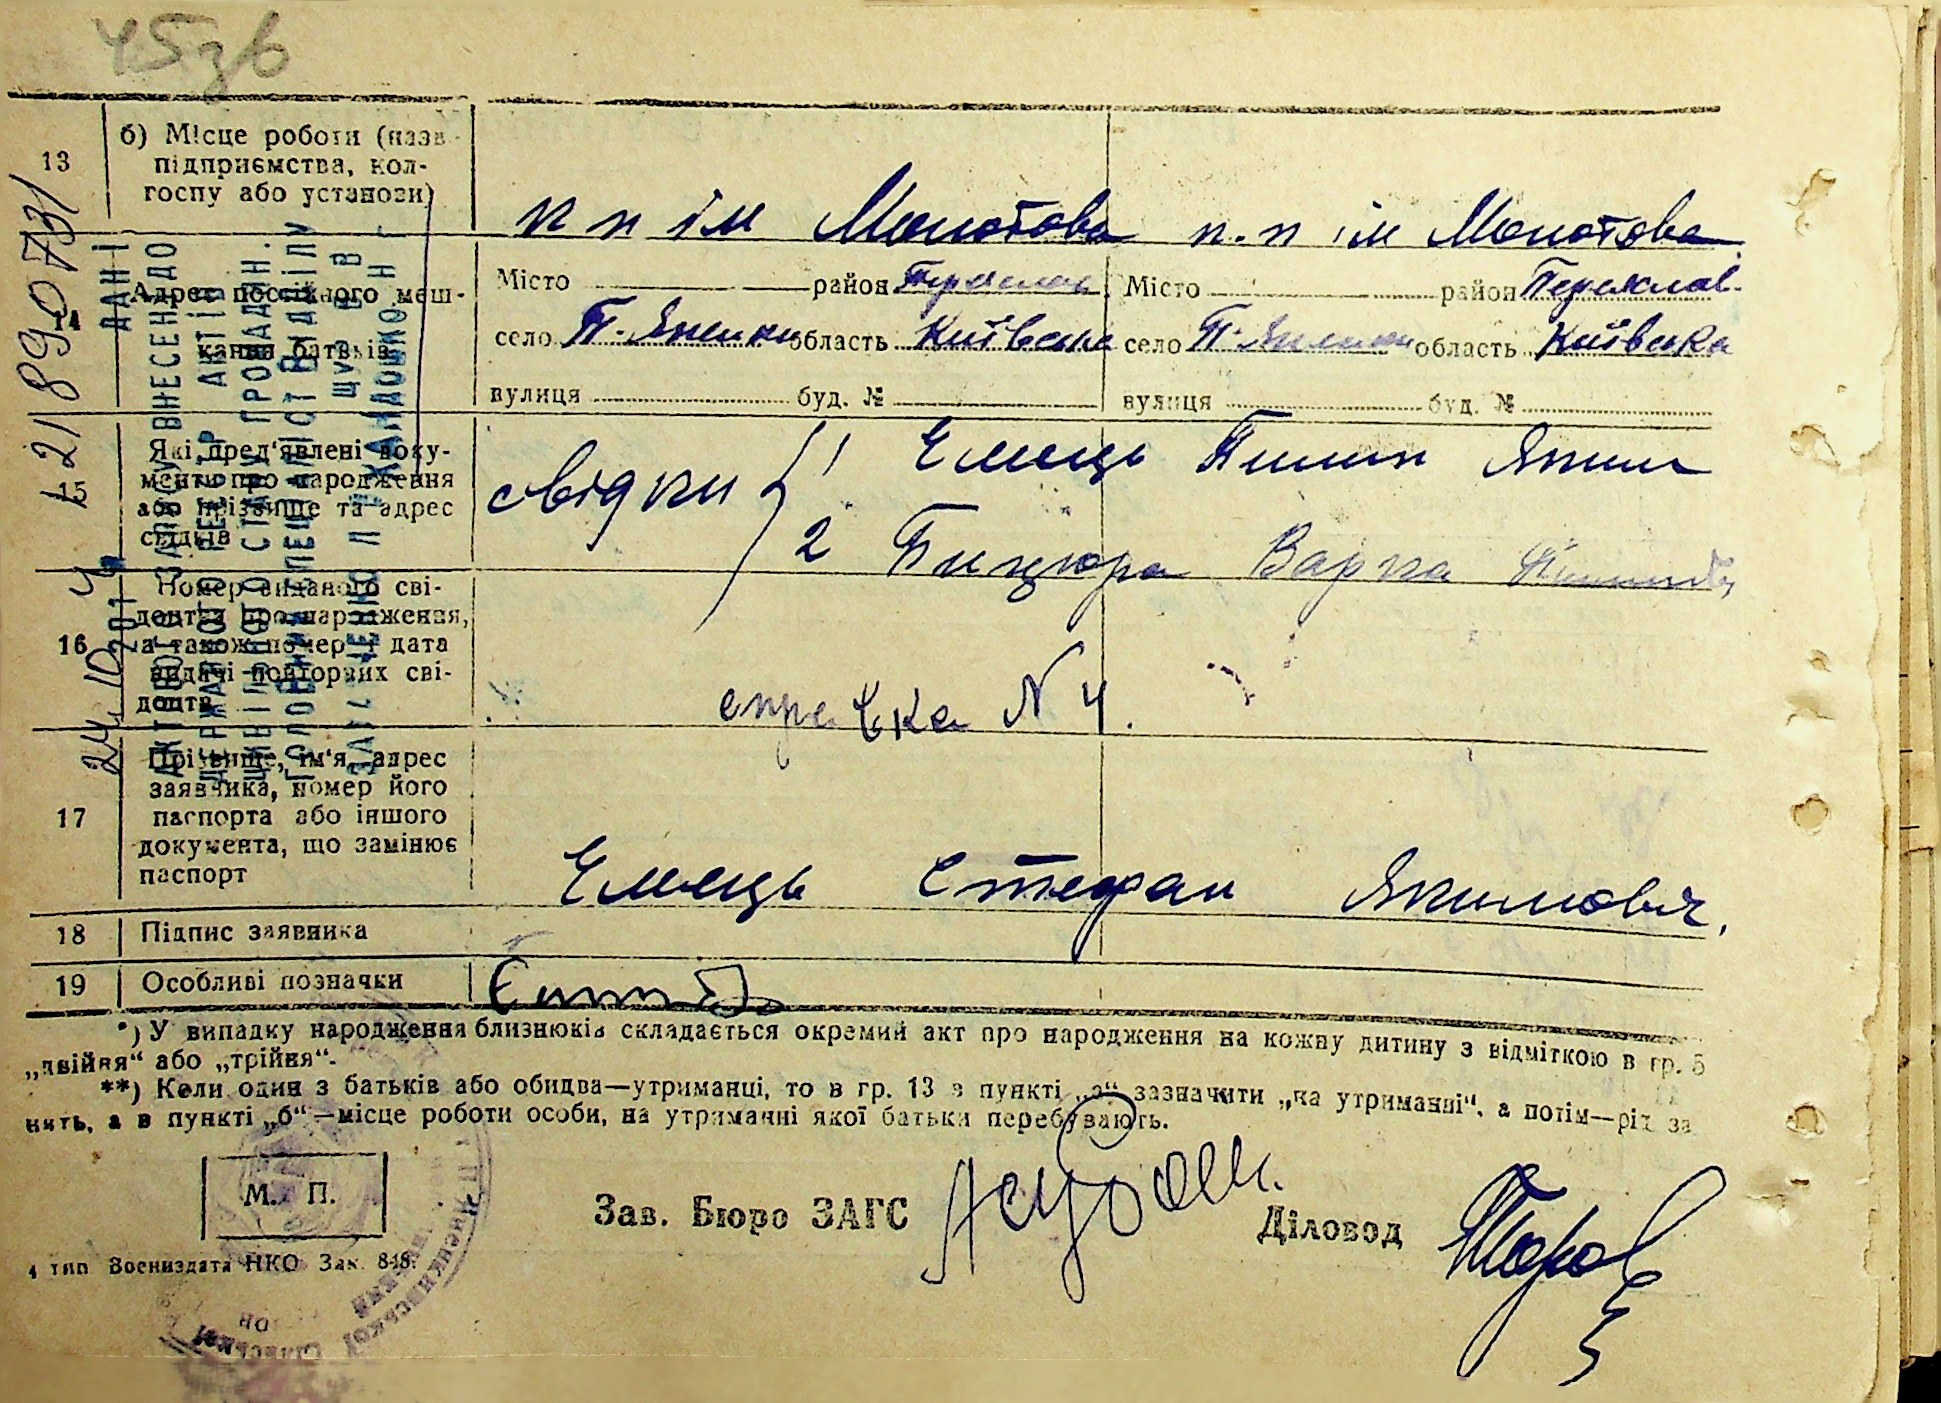 45зв
13
б) Місце роботи (назв
підприємства, кол-
госпу або установи)
к п ім Молотова
к.п ім Молотова
14
Адрес постійного меш-
кання батьків
Місто район Переяслав
село П-Яненки область Київська
вулиця буд. №
Місто район Переяслав.
село П-Яненки область Київська
вулиця буд. №
15
Які пред'явлені доку-
менти про народження
або прізвище та адрес
свідків
свідки
1 Ємець Пилип Яким
2 Бицюра Варка
16
Номер виданого сві-
доцтва про народження,
а також номер і дата
видачі повторних сві-
доцтв
справка N 4.
17
Прізвище, ім'я, адрес
заявника, номер його
паспорта або іншого
документа, що замінює
паспорт
Ємець Стефан Якимович.
18
Підпис заявника
19
Особливі позначки
*) У випадку народження близнюків складається окремий акт про народження на кожну дитину з відміткою в гр. 5
„двійня“ або „трійня“.
**) Коли один з батьків або обидва—утриманці, то в гр. 13 в пункті „а“ зазначити „на утриманні“, а потім—рід за
нять, а в пункті „б“—місце роботи особи, на утриманні якої батьки перебувають.
М. П.
Зав. Бюро ЗАГС
Діловод
4 тип Воениздата НКО Зак. 848.
ДАНІ
АКТОВОГО ЗАПИСУ ВНЕСЕНІ ДО
ДЕРЖАВНОГО РЕЄСТР АКТІВ
ЦИВІЛЬНОГО СТАНУ ГРОМАДЯН.
ГОЛОВНИЙ СПЕЦІАЛІСТ ВІДДІЛУ
24.10.2014
21890731